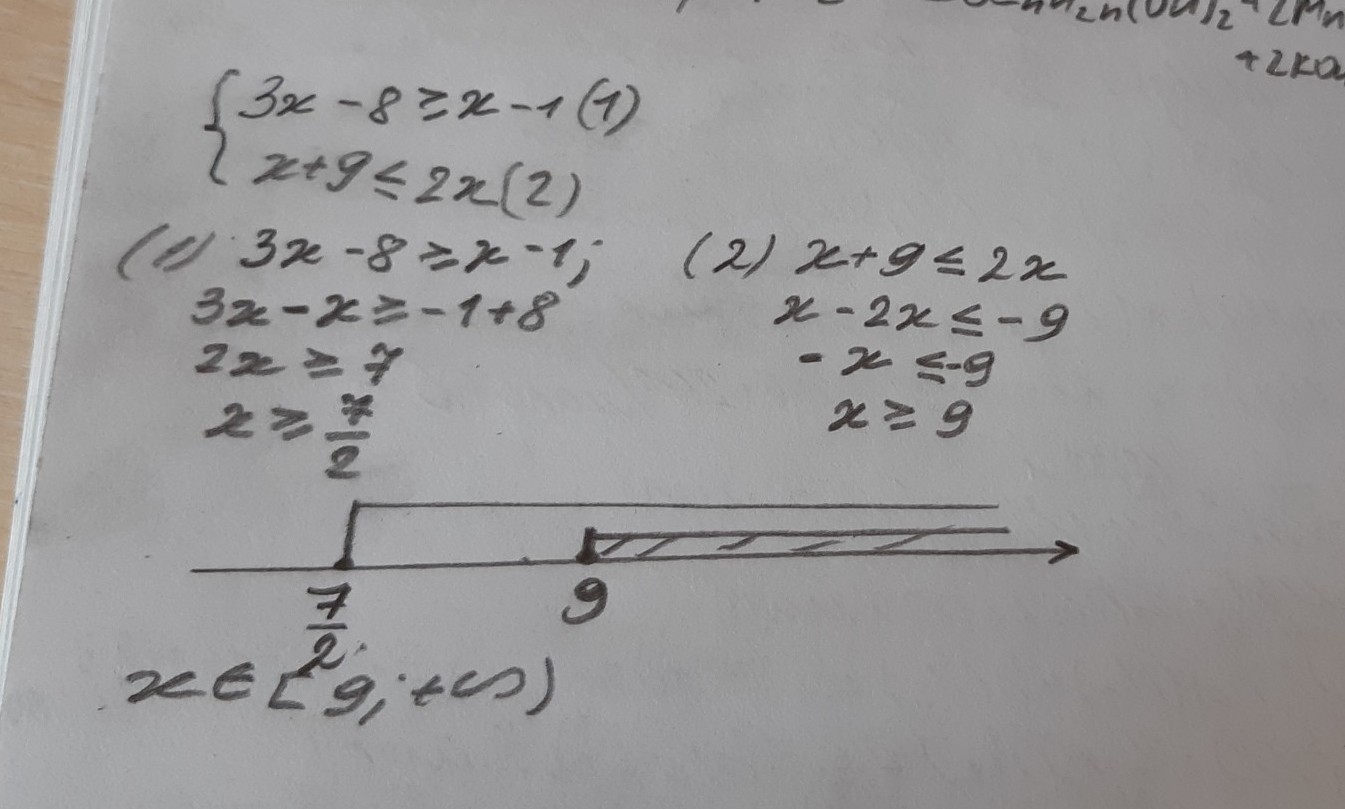 +2KO
{ 3x - 8 ≥ x - 1 (1)
x + 9 ≤ 2x (2)
(1) 3x - 8 ≥ x - 1;
3x - x ≥ -1 + 8
2x ≥ 7
x ≥ 7/2
(2) x + 9 ≤ 2x
x - 2x ≤ -9
-x ≤ -9
x ≥ 9
7/2 9
x ∈ [9; +∞)